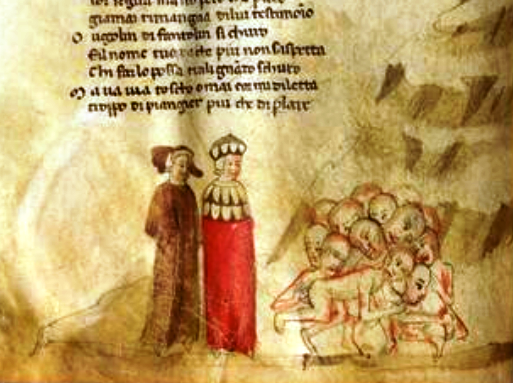 giamai rimangna dilui testimoīo
O ugolin di fantolin si churo
Eil nome tuo dache piu non saspetta
Chi far lo possa tralignādo schuro
Ma va via toscho omai cor mi diletta
troppo di piangier piu che di plare